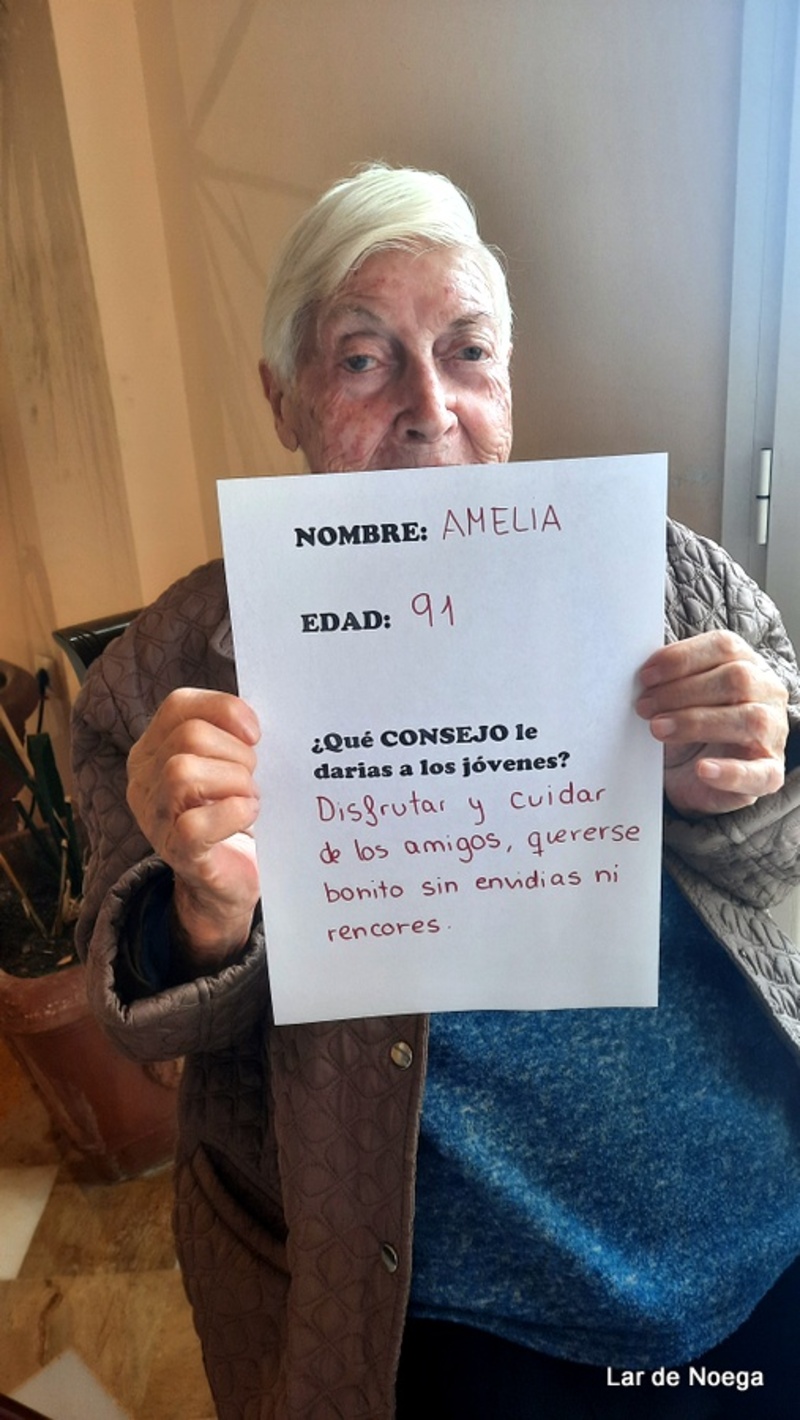 NOMBRE: AMELIA
EDAD: 91
¿Qué CONSEJO le
darias a los jóvenes?
Disfrutar y cuidar
de los amigos, quererse
bonito sin envidias ni
rencores.
Lar de Noega